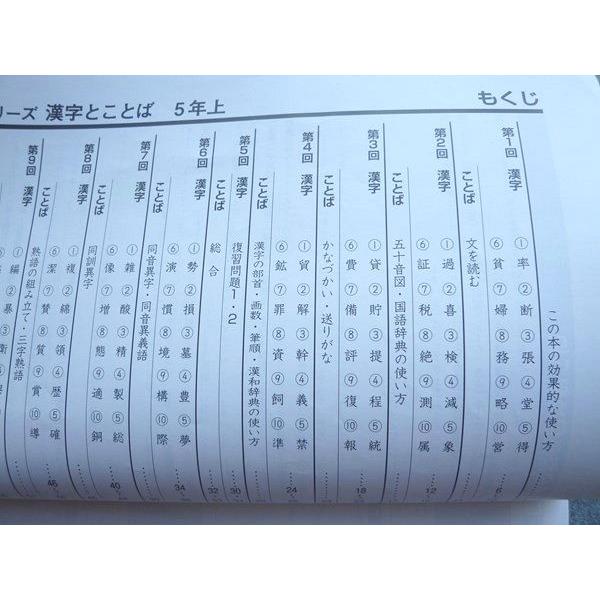 もくじ
リーズ 漢字とことば 5年上
この本の効果的な使い方
第1回 漢字 ①率 ②断 ③張 ④堂 ⑤得
⑥貧 ⑦婦 ⑧務 ⑨略 ⑩営 6
ことば 文を読む
第2回 漢字 ①過 ②喜 ③検 ④減 ⑤象
⑥証 ⑦税 ⑧絶 ⑨測 ⑩属 12
ことば 五十音図・国語辞典の使い方
第3回 漢字 ①貸 ②貯 ③提 ④程 ⑤統
⑥費 ⑦備 ⑧評 ⑨復 ⑩報 18
ことば かなづかい・送りがな
第4回 漢字 ①貿 ②解 ③幹 ④義 ⑤禁
⑥鉱 ⑦罪 ⑧資 ⑨飼 ⑩準 24
ことば 漢字の部首・画数・筆順・漢和辞典の使い方
第5回 復習問題1・2 30
ことば 総合 32
第6回 漢字 ①勢 ②損 ③墓 ④豊 ⑤夢
⑥演 ⑦慣 ⑧境 ⑨構 ⑩際 34
ことば 同音異字・同音異義語
第7回 漢字 ①雑 ②酸 ③精 ④製 ⑤総
⑥像 ⑦増 ⑧態 ⑨適 ⑩銅 40
ことば 同訓異字
第8回 漢字 ①複 ②綿 ③領 ④歴 ⑤確
⑥潔 ⑦賛 ⑧質 ⑨賞 ⑩導 46
ことば 熟語の組み立て・三字熟語
第9回 漢字 ①編 ②暴 ③衛